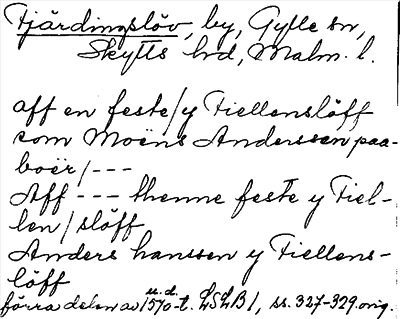 Fjärdingslöv, by, Gylle sn,
Skytts hd, Malm. l.
aff en feste/y Fiellenslöff
som Moens Anderssen paa-
boer/---
Aff --- thenne feste y Fiel-
len/slöff
Anders hanssen y Fiellens-
löff
förra delen av 1570-t. u.d. LSLB 1, ss. 327-329. orig.